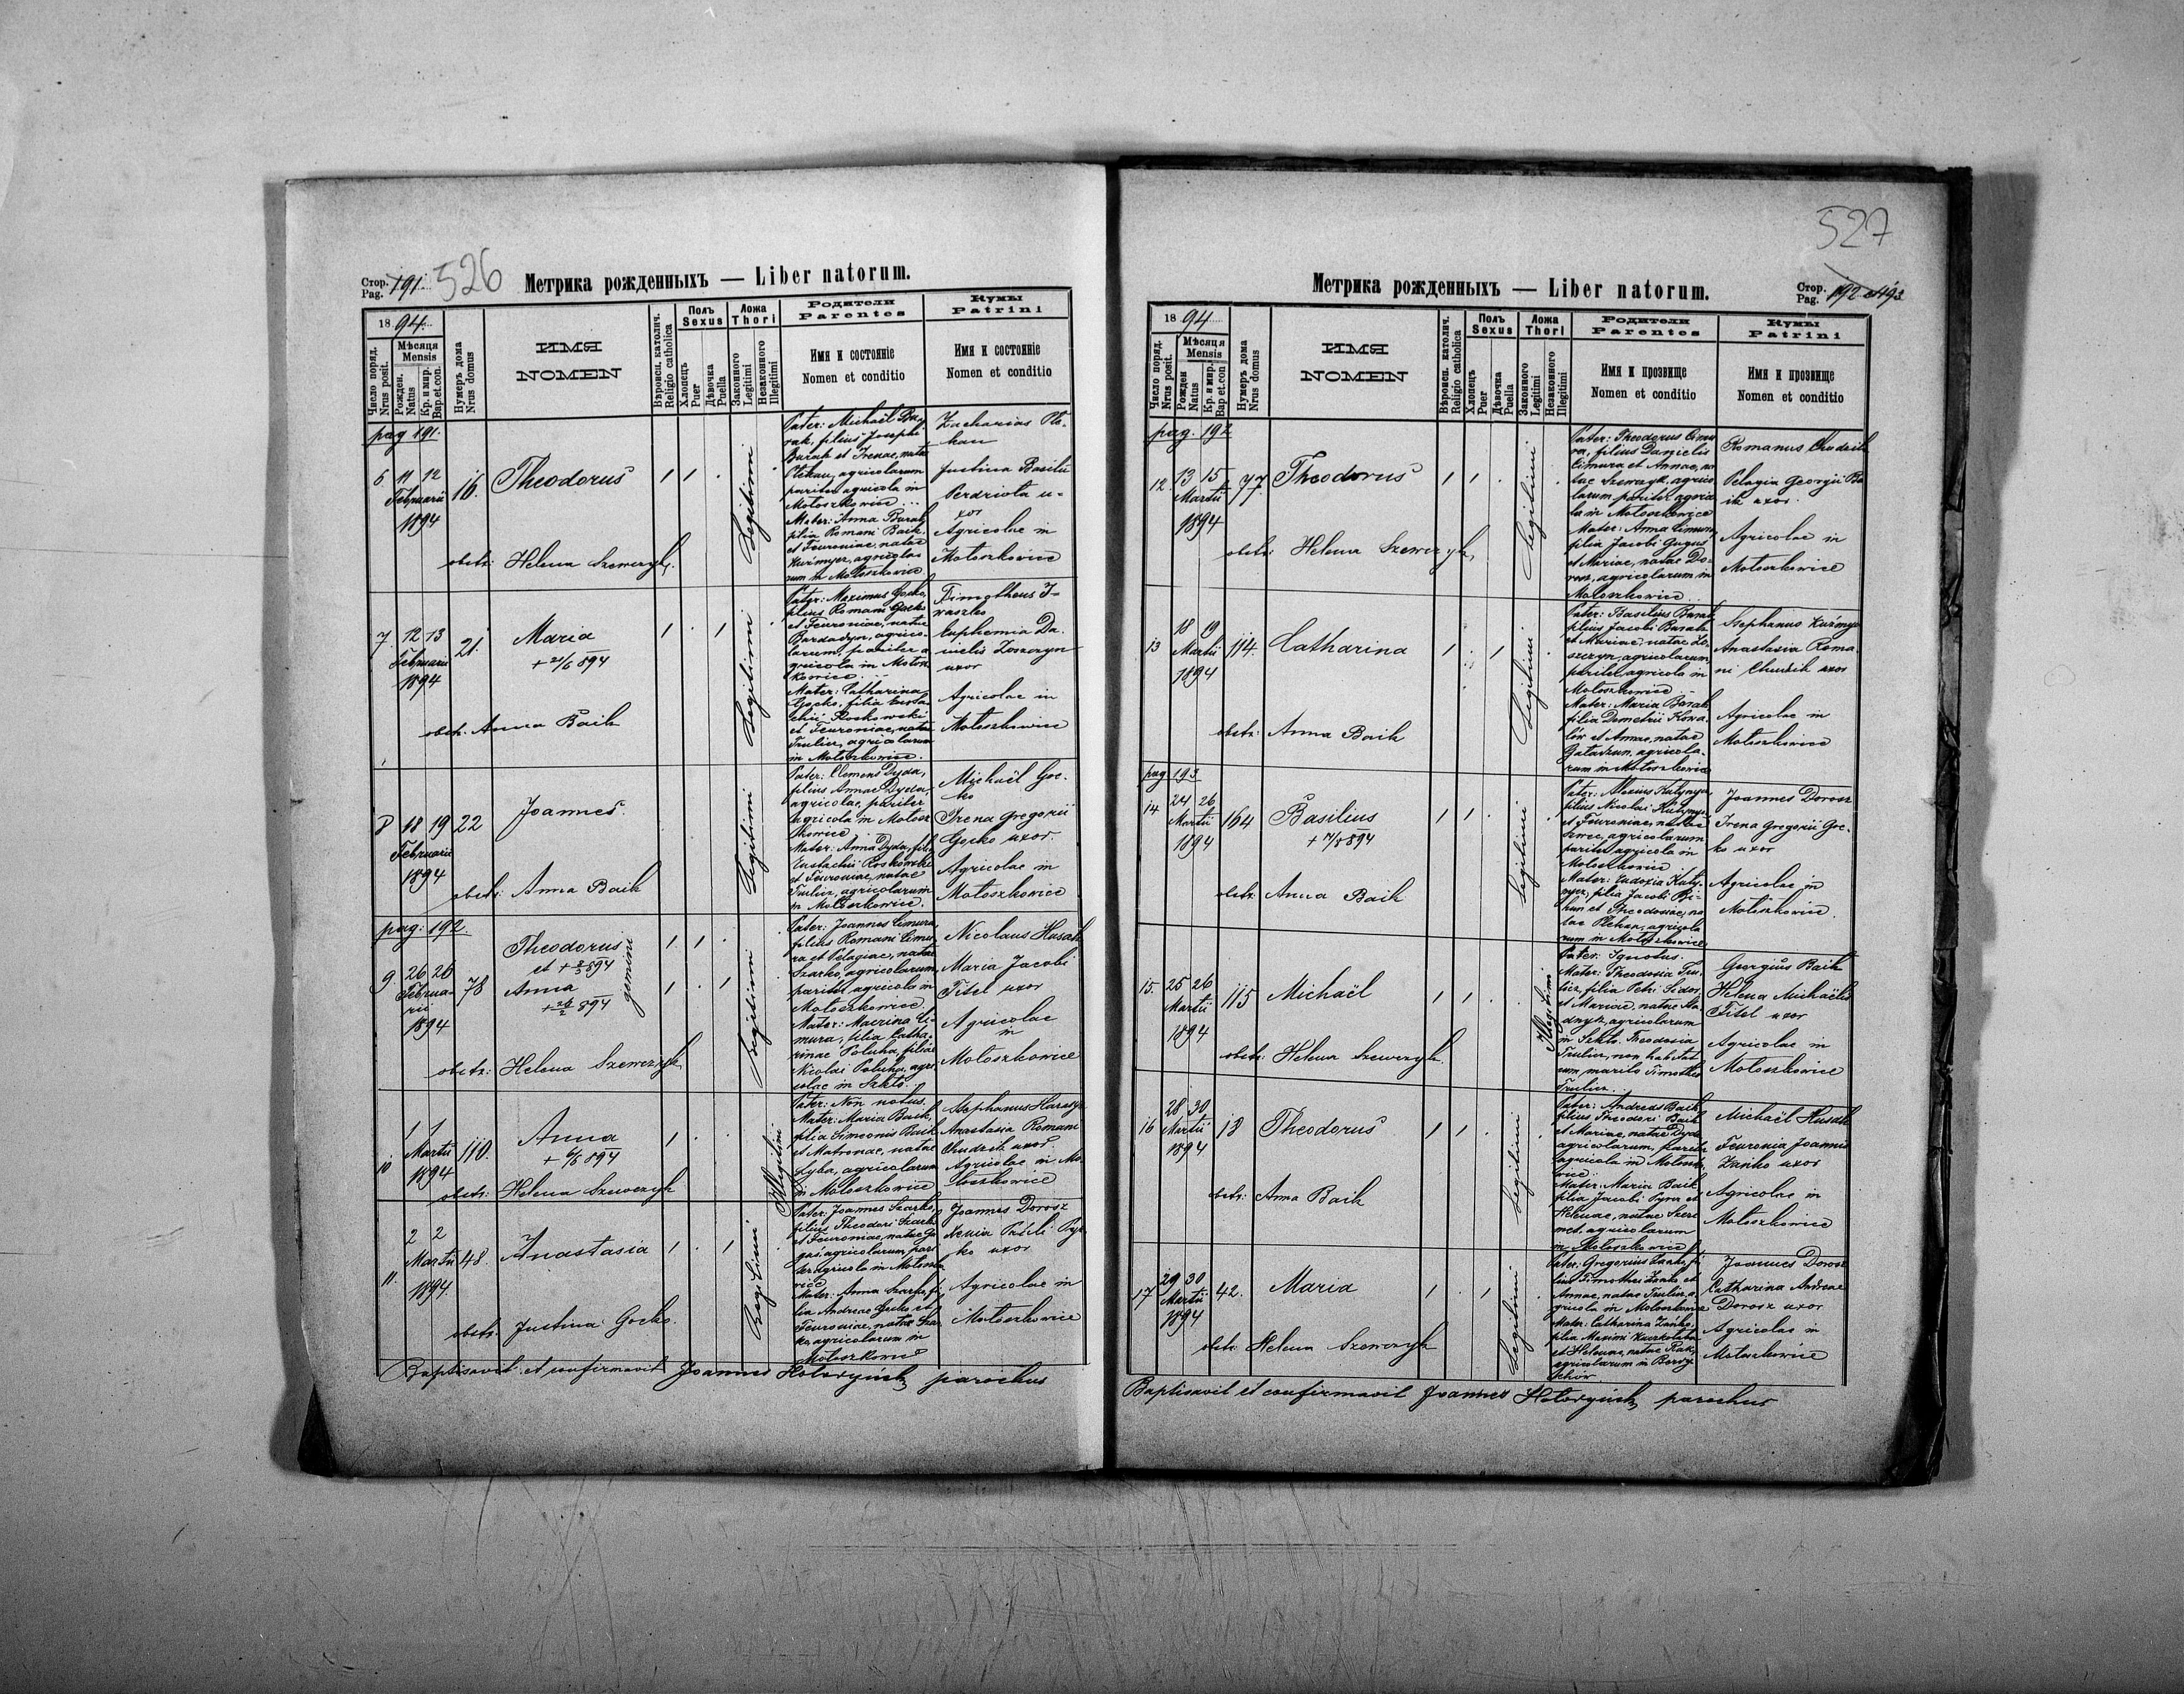 Стор. Pag. 191. 526
Метрика рожденныхъ — Liber natorum.
18 94.
Число поряд. Nrus posit.
Мѣсяця Mensis
Рожден. Natus
Кр. и мир. Bap. et. con.
Нумеръ дома Nrus domus
ИМЯ
NOMEN
Вѣроисп. католич. Religio catholica
Полъ Sexus
Хлопецъ Puer
Дѣвочка Puella
Ложа Thori
Законного Legitimi
Незаконного Illegitimi
Родители
Parentes
Имя и состояніе
Nomen et conditio
Кумы
Patrini
Имя и состояніе
Nomen et conditio
pag 191.
6 11 12 Februarii 1894 16. Theodorus
Legitimi
Pater: Michaël Bu-
rak, filius Josephi
Burak et Irenae, natae
agricolarum
pariter agricola in
Mołoszkowice
Mater: Anna Burak,
filia Romani Baik
et Feuroniae, natae
Kuźmycz, agricola-
rum in Mołoszkowice
Zacharias
Justina Basilii
u-
xor
Agricolae in
Mołoszkowice
obstr: Helena Szewczyk.
7 12 13 Februarii 1894 21. Maria
+ 21/6 894
Legitimi
Pater: Maximus Gocko,
filius Romani Gocko
et Feuroniae, natae
Bardadyn, agrico-
larum, pariter a-
gricola in Mołosz-
kowice
Mater: Catharina
Gocko, filia Eusta-
chii Roskowski
et Feuroniae, natae
Trulicz, agricolarum
in Mołoszkowice.
Timotheus I-
waszko
Euphemia Da-
nielis Łoszczyn
uxor
Agricolae in
Mołoszkowice
obstr. Anna Baik
8 18 19 Februarii 1894 22 Joannes.
Legitimi
Pater: Clemens Dyda,
filius Annae Dyda,
agricolae, pariter
agricola in Mołosz-
kowice
Mater: Anna Dyda, fil.
Eustachii Roskowski
et Feuroniae, natae
Trulicz, agricolarum
in Mołoszkowice.
Michaël Goc-
ko
Irena Gregorii
Gocko uxor.
Agricolae in
Mołoszkowice
obstr: Anna Baik
pag: 192.
9 26 26 Februarii 1894 78 Theodorus
et + 2/3 894
Anna
+ 26/2 894
gemini
Legitimi
Pater: Joannes Cimura
filius Romani Cimu-
ra et Pelagiae, natae
Szarko, agricolarum,
pariter agricola in
Mołoszkowice
Mater: Macrina Ci-
mura, filia Catha-
rinae Poluha, filiae
Nicolai Poluha, agri-
colae in Szkło.
Nicolaus Husak
Maria Jacobi
Titel uxor
Agricolae
in
Mołoszkowice
obstr: Helena Szewczyk
10 1 1 Martii 1894 110. Anna
+ 6/6 894
Illegitimi
Pater: Non notus.
Mater: Maria Baik,
filia Simeonis Baik
et Matronae, natae
Łyba, agricolarum
in Mołoszkowice
Stephanus
Anastasia Romani
Chudzik uxor
Agricolae in Mo-
łoszkowice
obstr: Helena Szewczyk
11. 2 2 Martii 1894 48. Anastasia
Legitimi
Pater: Joannes Szarko,
filius Theodori Szarko
et Feuroniae, natae
agricolarum, pari-
ter agricola in Mołoszko-
wice
Mater: Anna Szarko, fi-
lia Andreae Gocko et
Feuroniae, natae
agricolarum in
Mołoszkowice
Joannes Dorosz
Xenia
uxor
Agricolae in
Mołoszkowice
obstr: Justina Gocko.
Baptisavit et confirmavit Joannes Hołoryńsk parochus
527
Метрика рожденныхъ — Liber natorum.
Стор. Pag. 192 et 193
18 94
Число поряд. Nrus posit.
Мѣсяця Mensis
Рожден Natus
Кр. и мир. Bap. et. con
Нумеръ дома Nrus domus
ИМЯ
NOMEN
Вѣроисп. католич. Religio catholica
Полъ Sexus
Хлопецъ Puer
Дѣвочка Puella
Ложа Thori
Законного Legitimi
Незаконного Illegitimi
Родители
Parentes
Имя и прозвище
Nomen et conditio
Кумы
Patrini
Имя и прозвище
Nomen et conditio
pag. 192
12. 13 15 Martii 1894 77. Theodorus
Legitimi
Pater: Theodorus Cimu-
ra, filius Danielis
Cimura et Annae, na-
tae Szewczyk, agrico-
larum, pariter agrico-
la in Mołoszkowice
Mater: Anna Cimura,
filia Jacobi Gugus
et Mariae, natae Do-
rosz, agricolarum in
Mołoszkowice
Romanus Chudzik
Pelagia Georgii Ba-
ik uxor.
Agricolae in
Mołoszkowice
obstr: Helena Szewczyk
13 18 19 Martii 1894 114. Catharina
Legitimi
Pater: Basilius Burak
filius Jacobi Burak
et Mariae, natae Ło-
szczyn, agricolarum,
pariter agricola in
Mołoszkowice
Mater: Maria Burak
filia Demetrii Kowa-
lów et Annae, natae
agricola-
rum in Mołoszkowice
Stephanus Kuźmycz
Anastasia Roma-
ni Chudzik uxor
Agricolae in
Mołoszkowice
obstr: Anna Baik
pag 193
14 24 26 Martii 1894 164 Basilius
+ 11/8 894
Legitimi
Pater: Alexius
filius Nicolai
et Feuroniae, natae
Szwec, agricolarum
pariter agricola in
Mołoszkowice
Mater: Eudoxia
filia Jacobi
et Theodosiae, na-
tae Plichan, agricola-
rum in Mołoszkowice
Joannes Dorosz
Irena Gregorii Goc-
ko uxor
Agricolae in
Mołoszkowice.
obstr: Anna Baik
15. 25 26 Martii 1894 115 Michaël
Illegitimi
Pater: Ignotus.
Mater: Theodosia Tru-
licz, filia Petri Sidor
et Mariae, natae
agricolarum
in Szkło. Theodosia
Trulicz, non habitat
cum marito Timotheo
Trulicz.
Georgius Baik
Helena Michaëlis
Titel uxor
Agricolae in
Mołoszkowice
obstr: Helena Szewczyk.
16 28 30 Martii 1894 18 Theodorus
Legitimi
Pater: Andreas Baik
filius Theodori Baik
et Mariae, natae Dyda
agricolarum, pariter
agricola in Mołoszko-
wice.
Mater: Maria Baik
filia Jacobi Pyra et
Helenae, natae Szere-
met, agricolarum
in Mołoszkowice
Michaël Husak
Feuronia Joannis
Zańko uxor
Agricolae in
Mołoszkowice
obstr: Anna Baik
17 29 30 Martii 1894 42. Maria
Legitimi
Pater: Gregorius Zańko, fi-
lius Timothei Zańko et
Annae, natae Trulicz, a-
gricola in Mołoszkowice
Mater: Catharina Zańko,
filia Maximi
et Helenae, natae Rak,
agricolarum in
Joannes Dorosz
Catharina Andreae
Dorosz uxor
Agricolae in
Mołoszkowice
obstr: Helena Szewczyk
Baptisavit et confirmavit Joannes Hołoryńsk parochus